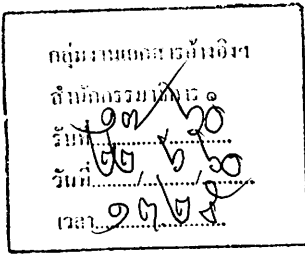 กลุ่มงานเอกสารอ้างอิงฯ
สำนักกรรมาธิการ ๑
รับที่ ๑๗/๖๐
วันที่ ๒๒/๖/๖๐
เวลา ๑๗๒๕